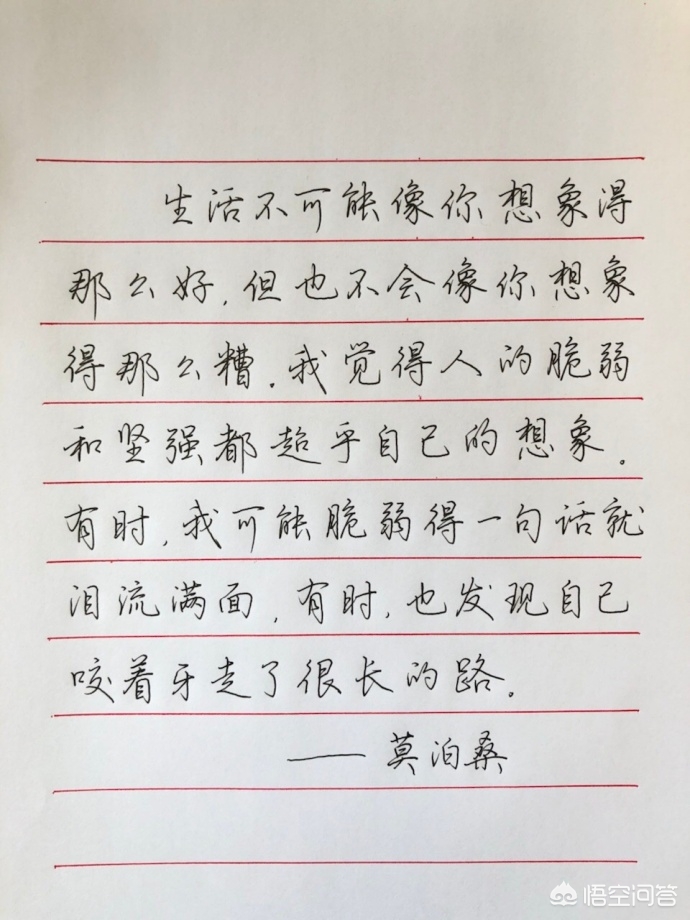 生活不可能像你想象得
那么好,但也不会像你想象
得那么糟。我觉得人的脆弱
和坚强都超乎自己的想象。
有时,我可能脆弱得一句话就
泪流满面,有时,也发现自己
咬着牙走了很长的路。
——莫泊桑
悟空问答